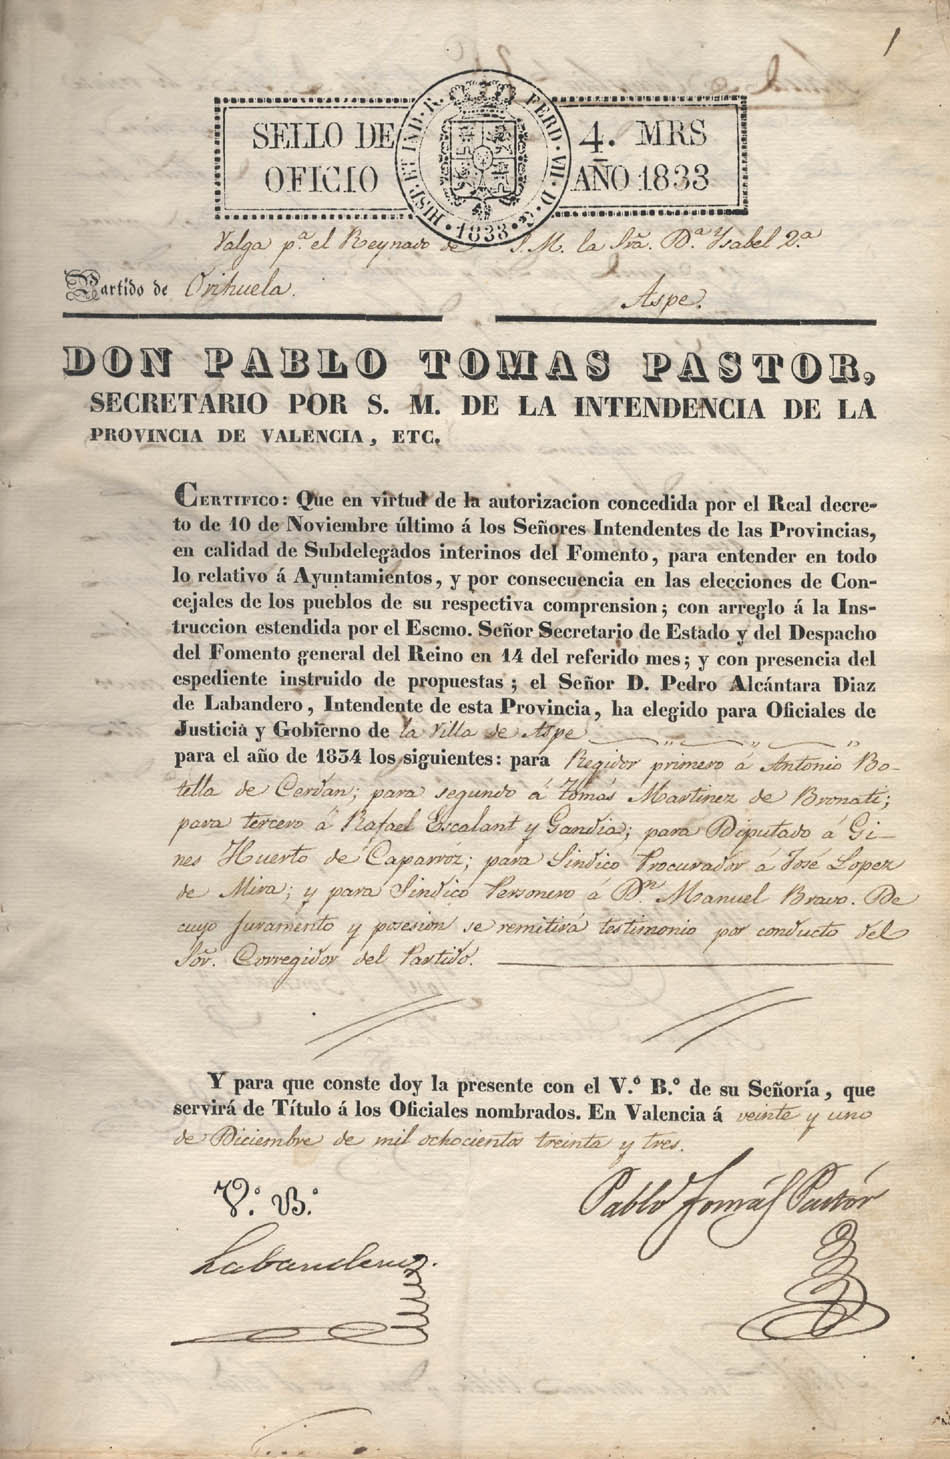 1
SELLO DE 4. MRS
OFICIO AÑO 1833
HISP. ET IND. R. FERD. VII. D. G. 1833
Valga p.ª el Reynado de S. M. la Sra. D.ª Ysabel 2.ª
Partido de Orihuela.
Aspe.
DON PABLO TOMAS PASTOR,
SECRETARIO POR S. M. DE LA INTENDENCIA DE LA
PROVINCIA DE VALENCIA, ETC.
CERTIFICO: Que en virtud de la autorizacion concedida por el Real decre-
to de 10 de Noviembre último á los Señores Intendentes de las Provincias,
en calidad de Subdelegados interinos del Fomento, para entender en todo
lo relativo á Ayuntamientos, y por consecuencia en las elecciones de Con-
cejales de los pueblos de su respectiva comprension; con arreglo á la Ins-
truccion estendida por el Escmo. Señor Secretario de Estado y del Despacho
del Fomento general del Reino en 14 del referido mes; y con presencia del
espediente instruido de propuestas; el Señor D. Pedro Alcántara Diaz
de Labandero, Intendente de esta Provincia, ha elegido para Oficiales de
Justicia y Gobierno de la Villa de Aspe
para el año de 1834 los siguientes: para Regidor primero á Antonio Bo-
tella de Cerdan; para segundo á Tomás Martinez de Bronati;
para tercero á Rafael Escalant y Gandia; para Diputado á Gi-
nes Huerto de Caparróz; para Sindico Procurador á José Lopez
de Mira; y para Sindico Personero á Dn. Manuel Bravo. De
cuyo juramento y posesion se remitirá testimonio por conducto del
Sor. Corregidor del Partido.
Y para que conste doy la presente con el V.º B.º de su Señoría, que
servirá de Título á los Oficiales nombrados. En Valencia á veinte y uno
de Diciembre de mil ochocientos treinta y tres.
V.º B.º
Pablo Tomás Pastór
Labandero.